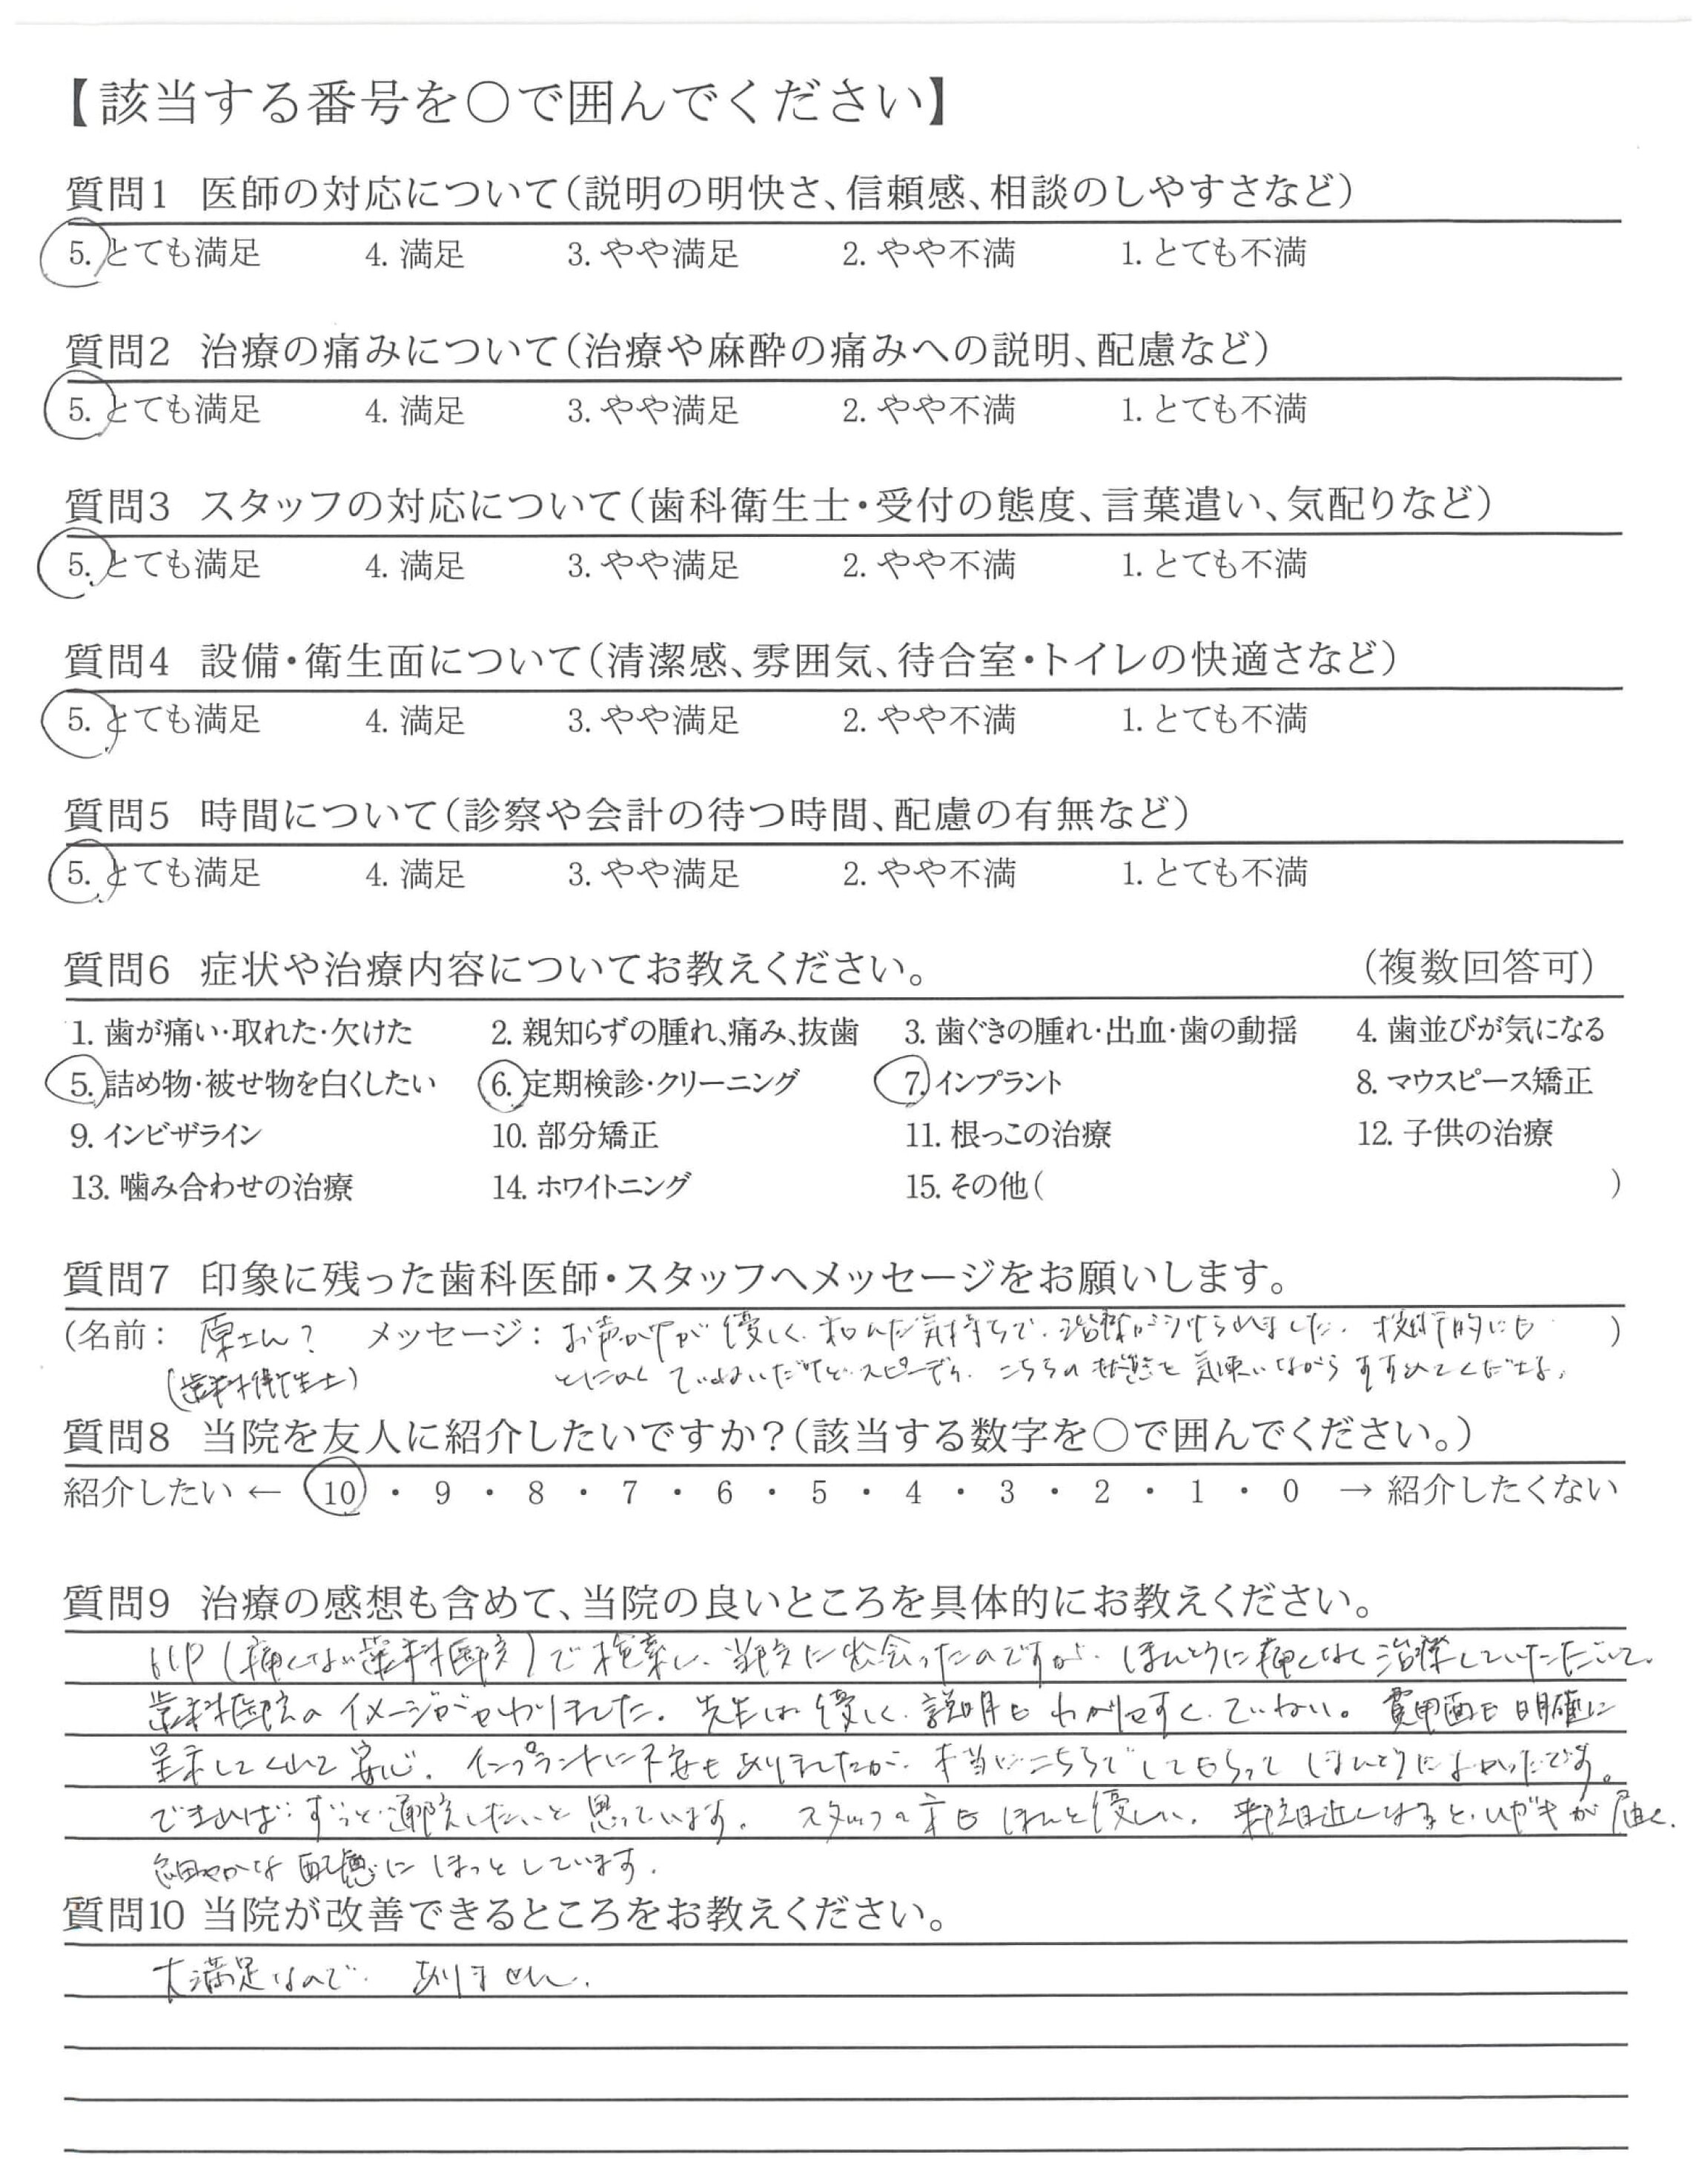 【該当する番号を〇で囲んでください】
質問1 医師の対応について(説明の明快さ、信頼感、相談のしやすさなど)
5. とても満足 4. 満足 3. やや満足 2. やや不満 1. とても不満
質問2 治療の痛みについて(治療や麻酔の痛みへの説明、配慮など)
5. とても満足 4. 満足 3. やや満足 2. やや不満 1. とても不満
質問3 スタッフの対応について(歯科衛生士・受付の態度、言葉遣い、気配りなど)
5. とても満足 4. 満足 3. やや満足 2. やや不満 1. とても不満
質問4 設備・衛生面について(清潔感、雰囲気、待合室・トイレの快適さなど)
5. とても満足 4. 満足 3. やや満足 2. やや不満 1. とても不満
質問5 時間について(診察や会計の待つ時間、配慮の有無など)
5. とても満足 4. 満足 3. やや満足 2. やや不満 1. とても不満
質問6 症状や治療内容についてお教えください。 (複数回答可)
1. 歯が痛い・取れた・欠けた 2. 親知らずの腫れ、痛み、抜歯 3. 歯ぐきの腫れ・出血・歯の動揺 4. 歯並びが気になる
5. 詰め物・被せ物を白くしたい 6. 定期検診・クリーニング 7. インプラント 8. マウスピース矯正
9. インビザライン 10. 部分矯正 11. 根っこの治療 12. 子供の治療
13. 噛み合わせの治療 14. ホワイトニング 15. その他( )
質問7 印象に残った歯科医師・スタッフへメッセージをお願いします。
(名前: 原さん? メッセージ: お声がけが優しく、和んだ気持ちで、治療がうけられました。技術的にも )
(歯科衛生士) とにかくていねいだけどスピーディ。こちらの状態を気遣いながらすすめてくださる。
質問8 当院を友人に紹介したいですか?(該当する数字を〇で囲んでください。)
紹介したい ← 10 ・ 9 ・ 8 ・ 7 ・ 6 ・ 5 ・ 4 ・ 3 ・ 2 ・ 1 ・ 0 → 紹介したくない
質問9 治療の感想も含めて、当院の良いところを具体的にお教えください。
HP(痛くない歯科医院)で検索し、当院に出会ったのですが、ほんとうに痛くなく治療していただいて、
歯科医院のイメージがかわりました。先生は優しく、説明もわかりやすく、ていねい。費用面も明確に
呈示してくれて安心。インプラントに不安もありましたが、本当にこちらでしてもらってほんとうによかったです。
できれば、ずっと通院したいと思っています。スタッフの方もほんと優しい。来院日近くなると、ハガキが届く。
細やかな配慮にほっとしています。
質問10 当院が改善できるところをお教えください。
大満足なので、ありません。